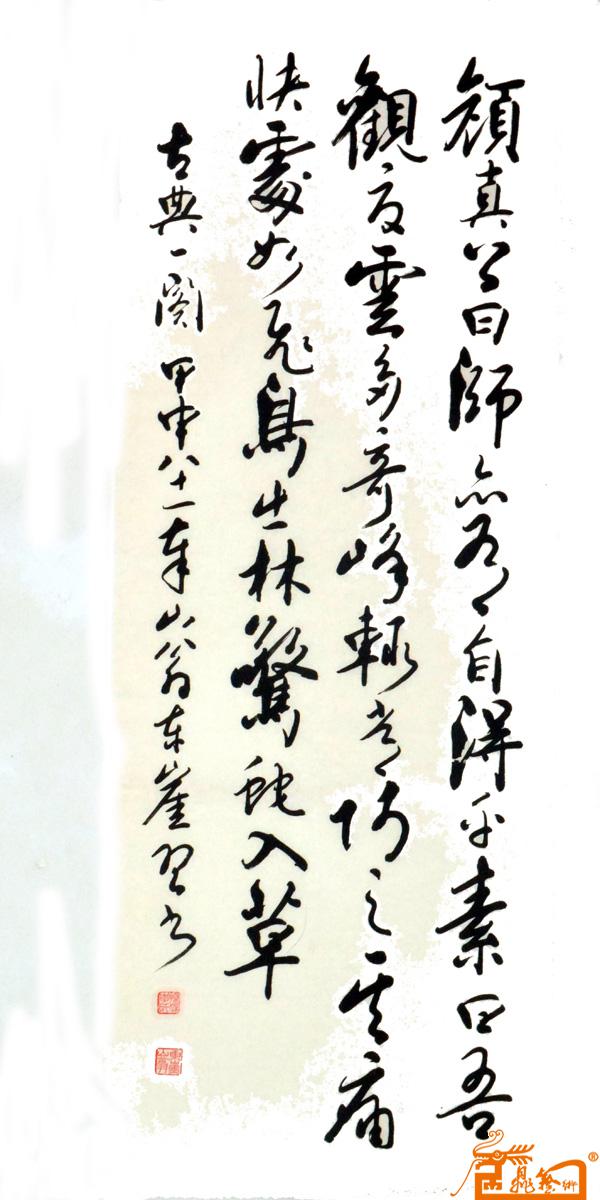 顔真公曰師亦有自得乎素曰吾
觀夏雲多奇峰輒常师之其痛
快處如飛鳥出林驚蛇入草
古典一阕 甲申八十一年山翁东崖习书